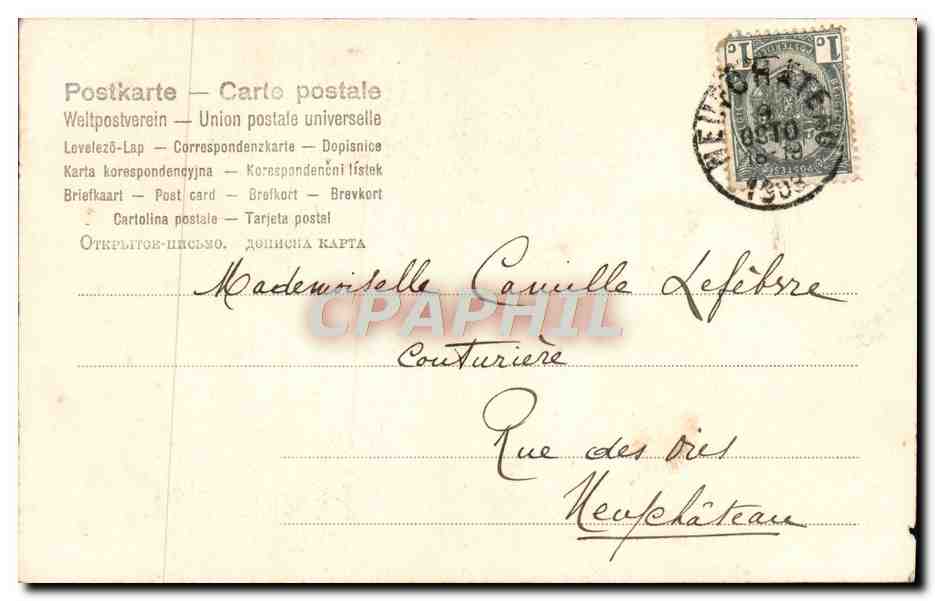 Postkarte — Carte postale
Weltpostverein — Union postale universelle
Levelező-Lap — Correspondenzkarte — Dopisnice
Karta korespondencyjna — Korespondenční lístek
Briefkaart — Post card — Brefkort — Brevkort
Cartolina postale — Tarjeta postal
Открытое-письмо, дописна карта
1c 1c
NEUFCHATEAU
9
OCTO
18-19
Mademoiselle Camille Lefèbvre
CPAPHIL
couturière
Rue des Oies
Neufchâteau